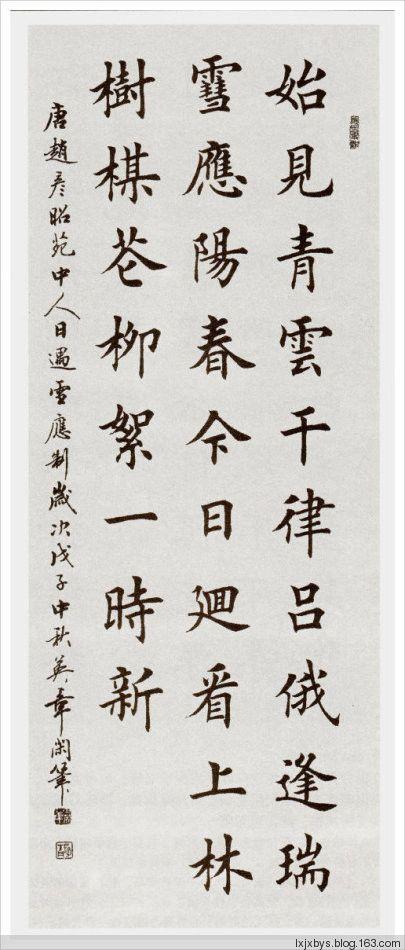 始見青雲千律呂俄逢瑞
雪應陽春今日迴看上林
樹楳花柳絮一時新
唐趙彦昭苑中人日遇雪應制歲次戊子中秋英章闲筆
lxjxbys.blog.163.com